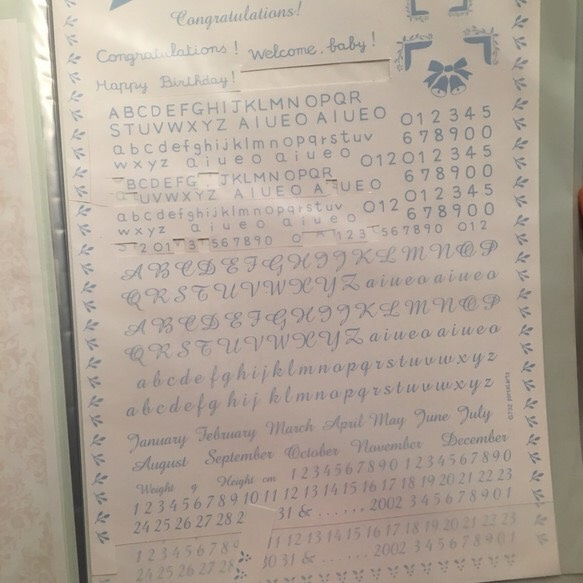 Congratulations!
Congratulations! Welcome, baby!
Happy Birthday!
ABCDEFGHIJKLMNOPQR
STUVWXYZ AIUEO AIUEO 012345
abcdefghijklmnopqrstuv 678900
wxyz aiueo aiueo 012012345
BCDEFG JKLMNOPQR 678900
UVWXYZ AIUEO A UEO 012345
abcdefghijklmnopqrstuv 012 678900
wxyz aiueo aiueo
2 01 3 567890 0 123 567890 012
ABCDEFGHIJKLMNOP
QRSTUVWXYZaiueoaiueo
ABCDEFGHIJKLMNOP
QRSTUVWXYZaiueoaiueo
abcdefghijklmnopqrstuvwxyz
abcdefghijklmnopqrstuvwxyz
January February March April May June July
August September October November December
Weight g Height cm 1234567890 1234567890
1 2 3 4 5 6 7 8 9 10 11 12 13 14 15 16 17 18 19 20 21 22 23
24 25 26 27 28 2 31 & ...... 2002 345678901
1 2 3 4 5 6 7 8 11 12 13 14 15 16 17 18 19 20 21 22 23
24 25 26 27 28 30 31 & ...... 2002 345678901